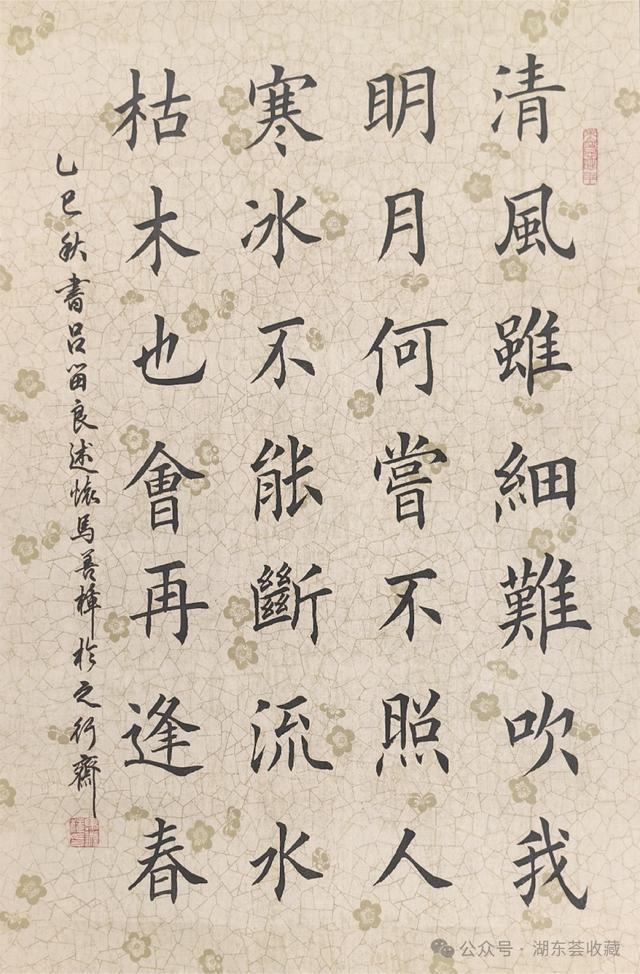 清風雖細難吹我
明月何嘗不照人
寒冰不能斷流水
枯木也會再逢春
乙巳秋書呂留良述懷馬善樟於之行齋
公众号·湖东荟收藏